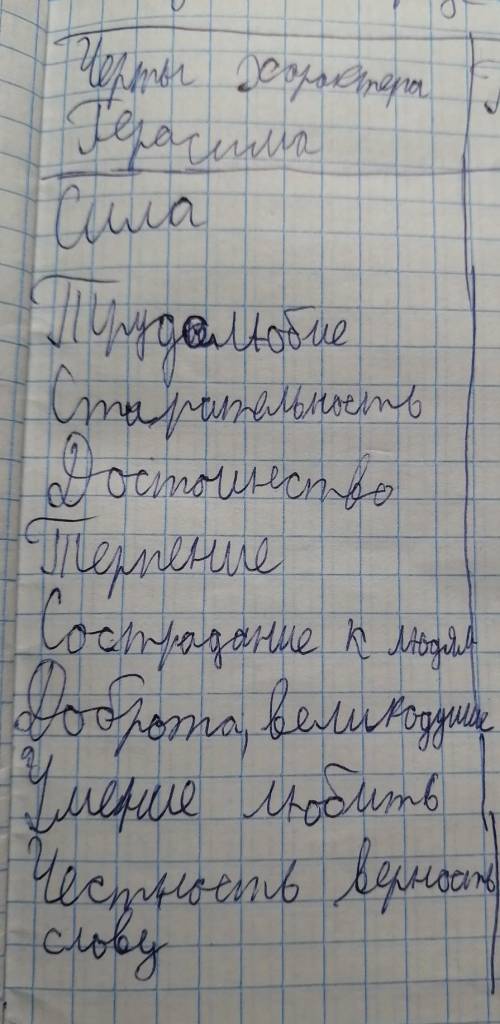 Черты характера
Герасима
Сила
Трудолюбие
Старательность
Достоинство
Терпение
Сострадание к людям
Доброта, великодушие
Умение любить
Честность верность
слову